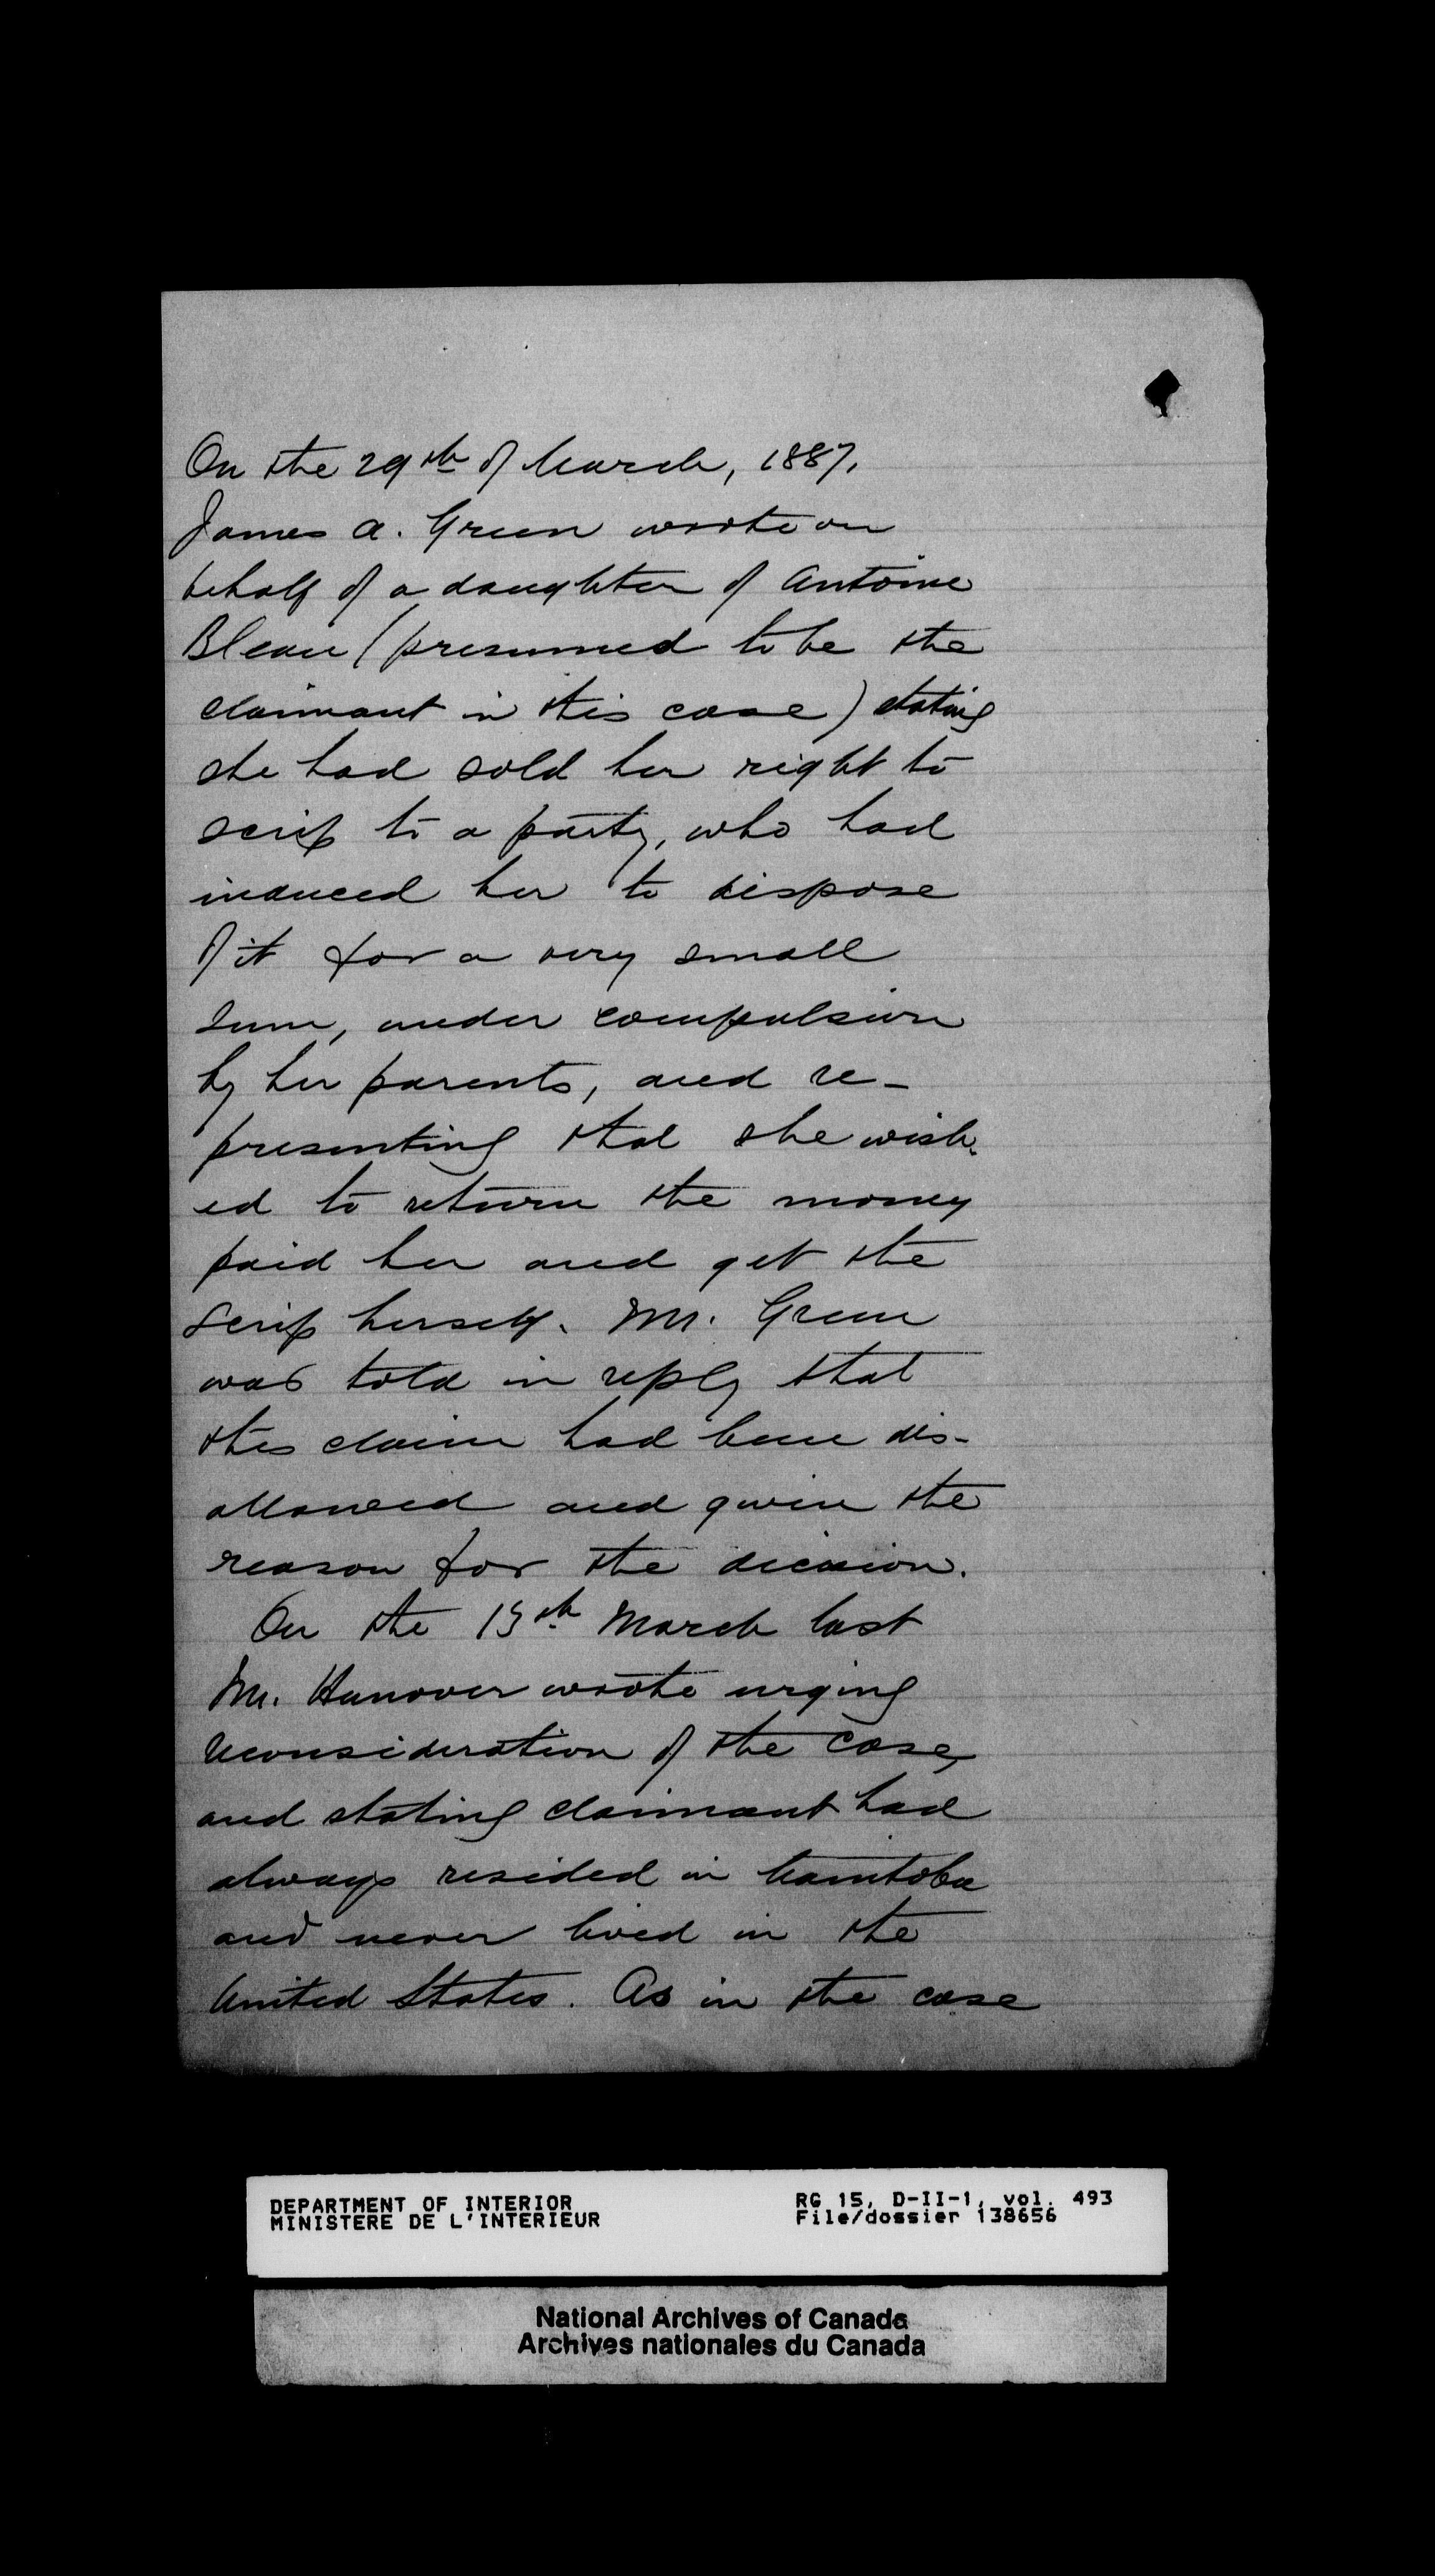 On the 29th of March, 1887,
James A. Green wrote on
behalf of a daughter of Antoine
Bleau (presumed to be the
claimant in this case) stating
she had sold her right to
scrip to a party, who had
induced her to dispose
of it for a very small
sum, under compulsion
by her parents, and re-
presenting that she wish-
ed to return the money
paid her and get the
scrip herself. Mr. Green
was told in reply that
this claim had been dis-
allowed and given the
reason for the decision.
On the 15th March last
Mr. Hanover wrote urging
reconsideration of the case,
and stating claimant had
always resided in Manitoba
and never lived in the
United States. As in the case
DEPARTMENT OF INTERIOR
MINISTERE DE L'INTERIEUR
RG 15, D-II-1, vol. 493
File/dossier 138656
National Archives of Canada
Archives nationales du Canada